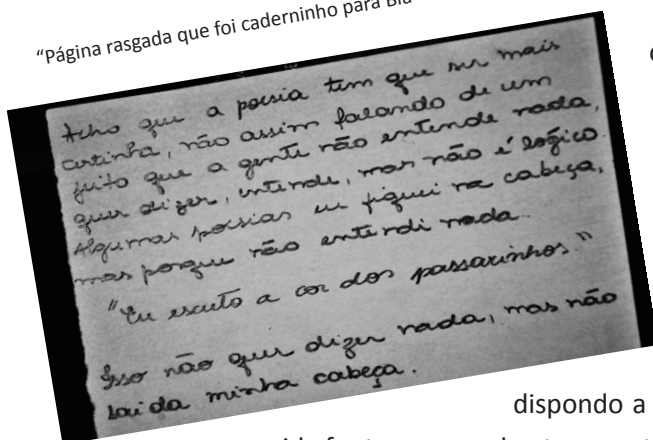 “Página rasgada que foi caderninho para Bia
Acho que a poesia tem que ser mais
certinha, não assim falando de um
jeito que a gente não entende nada,
quer dizer, entende, mas não é lógico.
Algumas poesias eu fiquei na cabeça,
mas porque não entendi nada.
"Eu escuto a cor dos passarinhos."
Isso não quer dizer nada, mas não
sai da minha cabeça.
dispondo a